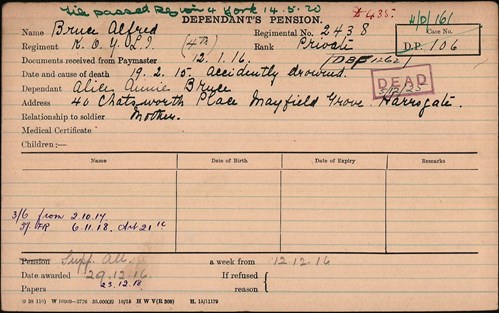 File passed Region 4 York 14.5.20
£435.
4/D/161
DEPENDANT'S PENSION.
Name Bruce Alfred Regimental No. 2438
Case No.
D.P. 106
Regiment K.O.Y.L.I. (4th) Rank Private
Documents received from Paymaster 12.1.16
Date and cause of death 19.2.15. Accidently drowned.
Dependant Alice Annie Bruce
DEAD
Address 40 Chatsworth Place Mayfield Grove Harrogate.
Relationship to soldier Mother.
Medical Certificate
Children:—
Name Date of Birth Date of Expiry Remarks
3/6 from 2.10.17
5/- FR 6.11.18. Art 21
Pension Supp. All. a week from 12.12.16
Date awarded 29.12.16 If refused
Papers 23.12.18 reason